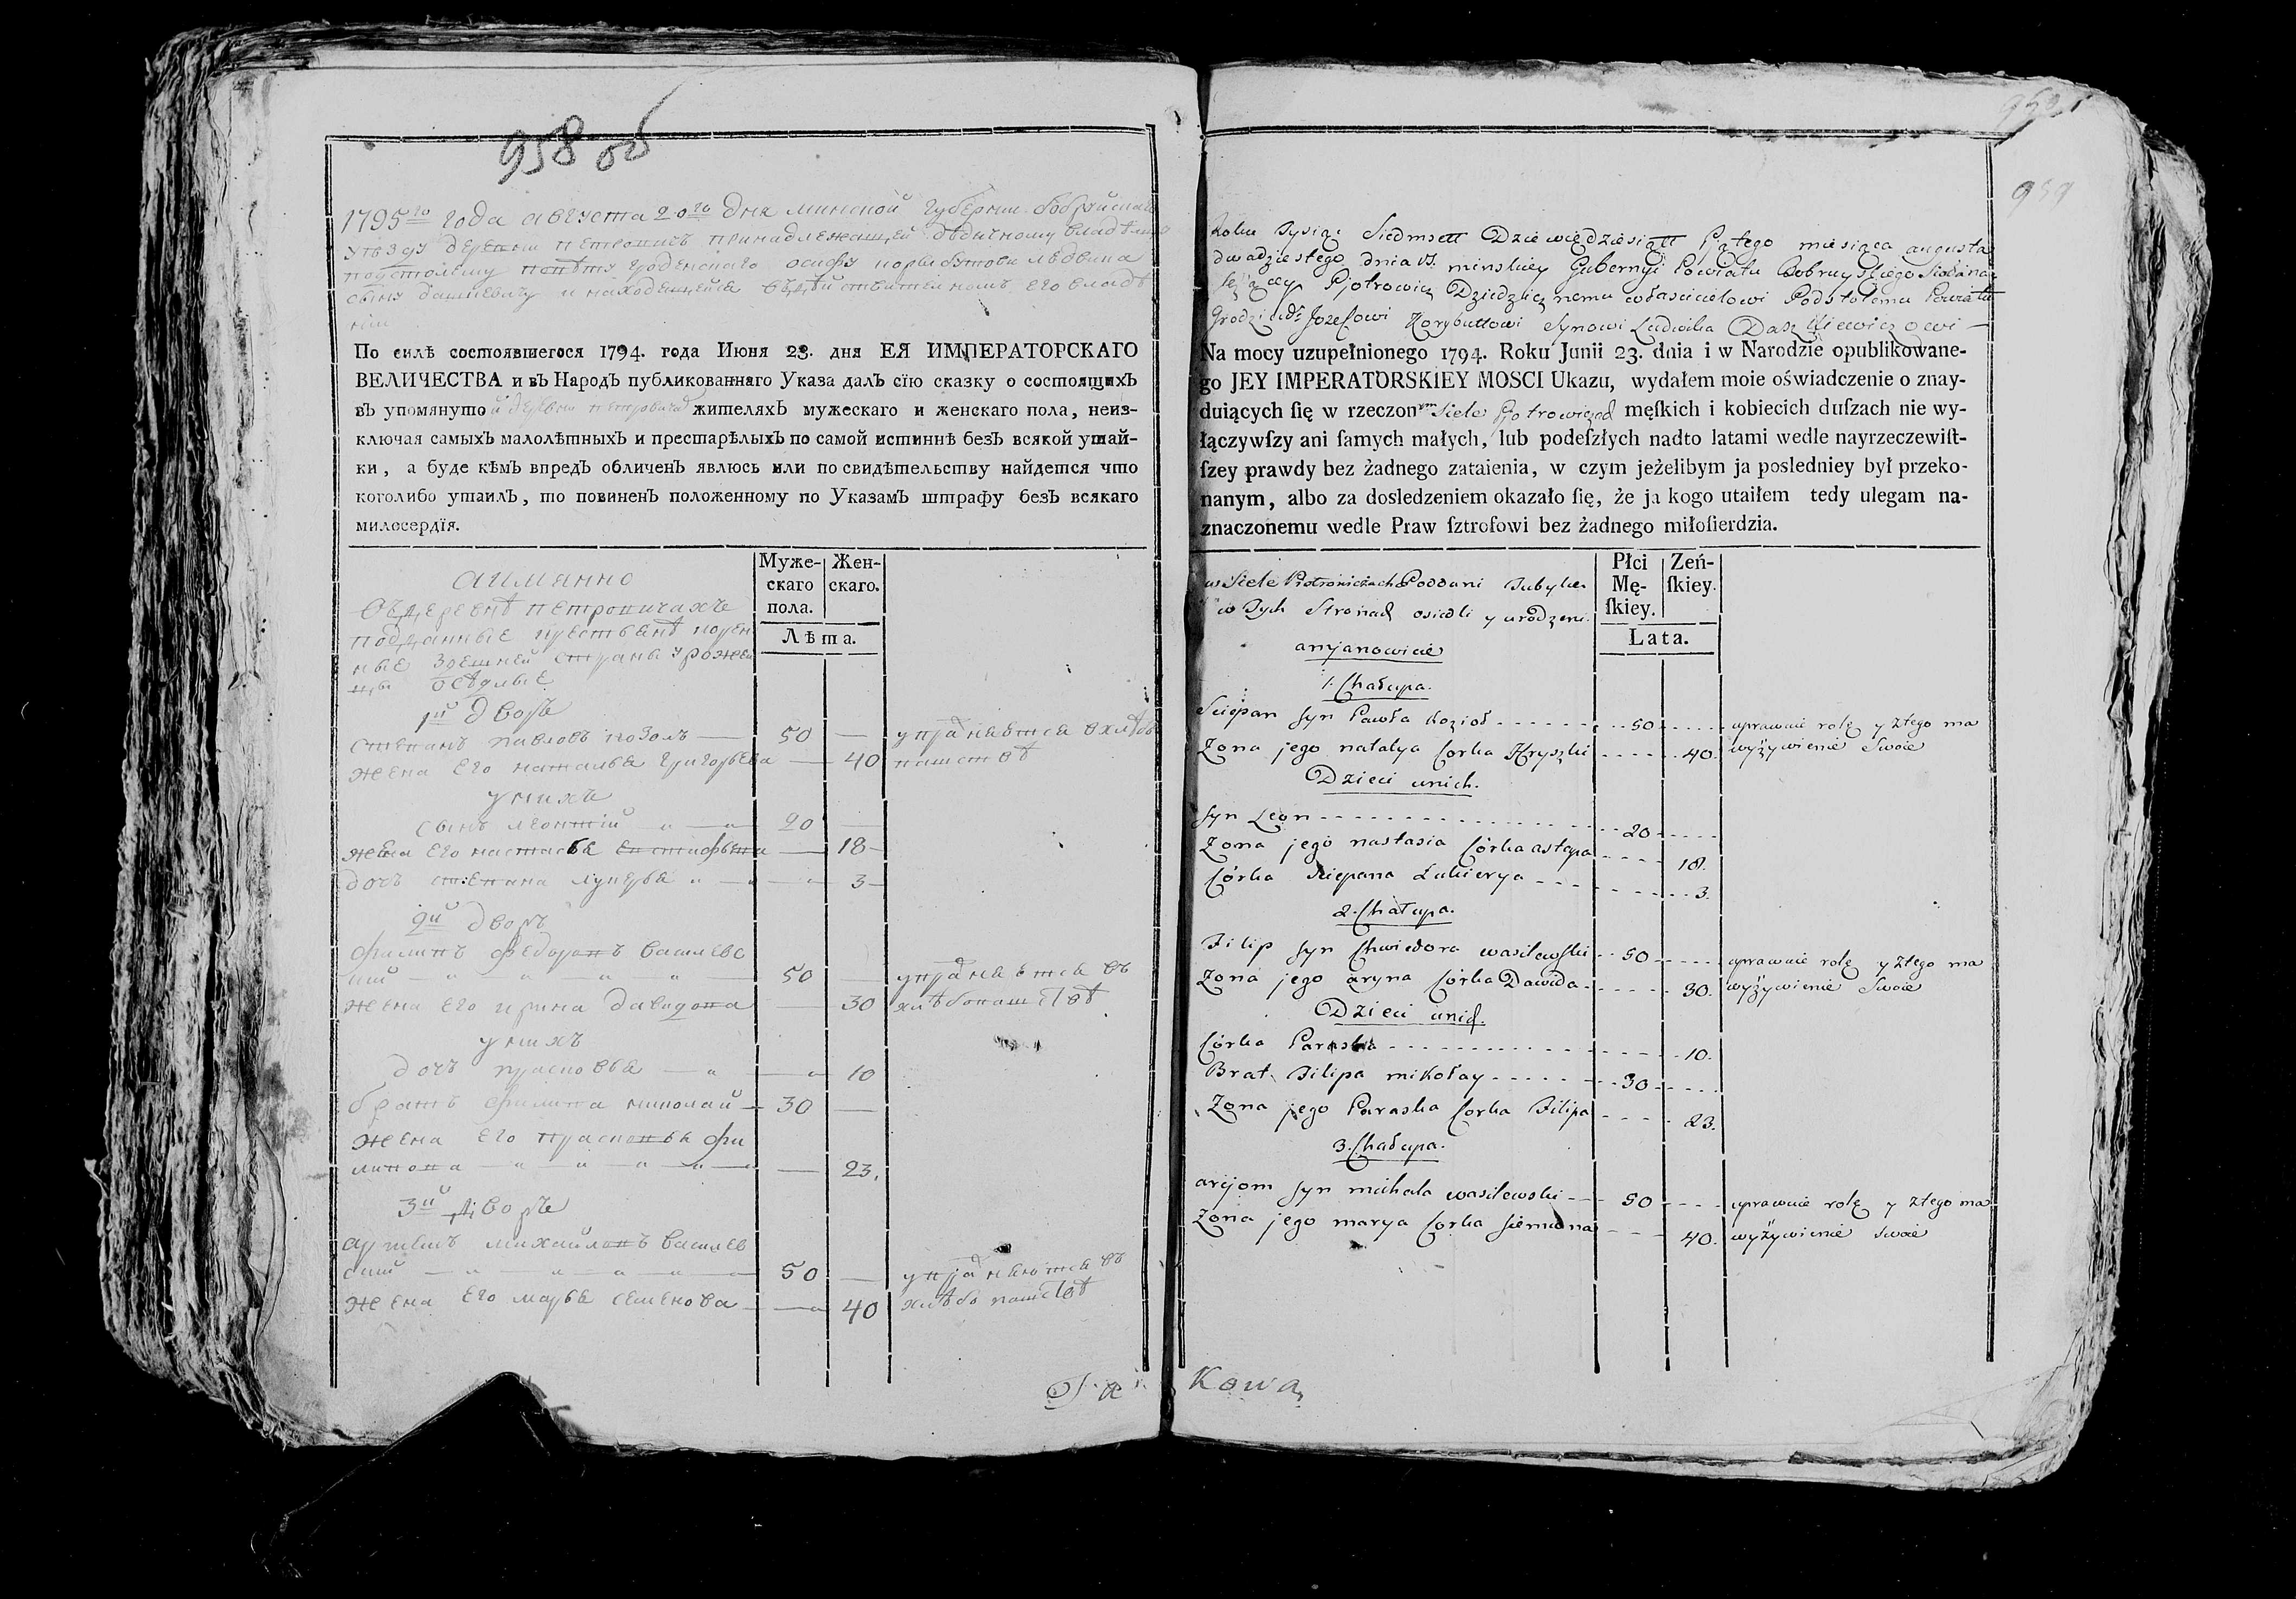 958 об
1795го года августа 20го дня минской губернии бобруйскаго
уезду деревни петровичь принадлежащей дѣдичному владѣлцу
подстолему повѣту гроденскаго осифу корыбутови людвика
сыну дашкевичу и находещейсе въдѣйствителномъ его владѣ
нии
По силѣ состоявшегося 1794. года Июня 23. дня ЕЯ ИМПЕРАТОРСКАГО
ВЕЛИЧЕСТВА и въ Народъ публикованнаго Указа далъ сїю сказку о состоящихъ
въ упомянутой деревни петровичах жителяхъ мужескаго и женскаго пола, неиз-
ключая самыхъ малолѣтныхъ и престарѣлыхъ по самой истиннѣ безъ всякой утай-
ки, а буде кѣмъ впредъ обличенъ явлюсь или по свидѣтельству найдется что
коголибо утаилъ, то повиненъ положенному по Указамъ штрафу безъ всякаго
милосердїя.
Муже- Жен-
скаго скаго.
пола.
Лѣта.
аимянно
въдеревнѣ петровичахъ
подданные крестьянѣ корен
ные здешней страны урожен
цы осѣдлые
1й дворъ
степанъ павловъ козолъ — 50 — упражняетсе вхлѣбо
жена его наталья григорьева — 40 пашествѣ
унихъ
сынъ леонтий 20 —
жена его настасья евстафьева — 18
дочь степана лукерья 3
2й дворъ
филипъ федоровъ василевс
кий 50 — упражняетсе въ
жена его ирина давидова — 30 хлѣбопашествѣ
унихъ
дочь прасковья 10
братъ филипа николай — 30 —
жена его прасковья фи
липова — 23.
3й дворъ
артемъ михайловъ василев
ский 50 — упражняютсе въ
жена его марья семенова 40 хлѣбопашествѣ
959
Roku Tysiąc Siedmsett Dziewiędziesiątt Piątego miesiąca augusta
dwadziestego dnia Vs. minskiey Gubernyi Powiatu Bobruyskiego Sioła na
leżącego Piotrowicz Dziedzicznemu właścicielowi Podstolemu Powiatu
Grodzień Jozefowi Korybuttowi Synowi Ludwika Daszkiewiczowi —
Na mocy uzupełnionego 1794. Roku Junii 23. dnia i w Narodzie opublikowane-
go JEY IMPERATORSKIEY MOSCI Ukazu, wydałem moie oświadczenie o znay-
duiących ſię w rzeczonym Siele Piotrowiczach męſkich i kobiecich duſzach nie wy-
łączywſzy ani ſamych małych, lub podeſzłych nadto latami wedle nayrzeczewiſt-
ſzey prawdy bez żadnego zataienia, w czym jeżelibym ja posledniey był przeko-
nanym, albo za dosledzeniem okazało ſię, że ja kogo utaiłem tedy ulegam na-
znaczonemu wedle Praw ſztrofowi bez żadnego miłoſierdzia.
Płci Zeń-
Mę- ſkiey.
ſkiey.
Lata.
w Siele Piotrowiczach Poddani Tubylce
w Tych Stronach osiedli y urodzeni
amianowicie
1. Chałupa.
Sciepan syn Pawła Kozioł 50 uprawuie rolę y ztego ma
Zona jego natalya Corka Hryszki 40. wyżywienie Swoie
Dzieci unich.
syn Leon 20
Zona jego nastasia Córka astapa 18.
Córka Sciepana Łukierya 3.
2. Chałupa.
Filip syn Chwiedora wasilewski 50 uprawuie rolę y ztego ma
Zona jego aryna Córka Dawida 30. wyżywienie Swoie
Dzieci unich.
Córka Paraska 10.
Brat Filipa mikołay 30
Zona jego Paraska Corka Filipa 23.
3. Chałupa.
arcjom syn michała wasilewski 50 uprawuie rolę y ztego ma
Zona jego marya Corka siemiona 40. wyżywienie Swoie
Kowa